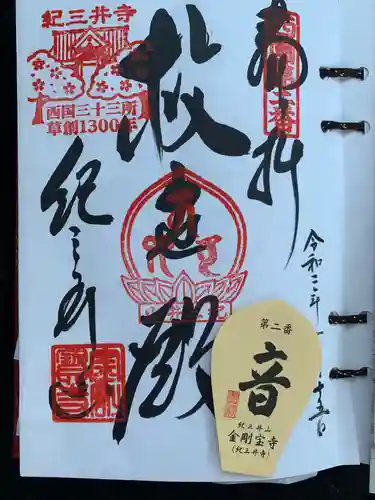 奉拝
西国第二番
紀三井寺
西国三十三所
草創1300年
救世殿
紀三井寺
令和二年
第二番
音
紀三井山
金剛宝寺
(紀三井寺)